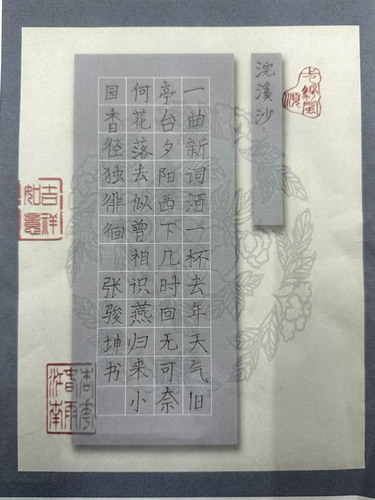 浣溪沙
一曲新词酒一杯去年天气旧
亭台夕阳西下几时回无可奈
何花落去似曾相识燕归来小
园香径独徘徊 张骏坤书
吉祥如意
杏花春雨江南